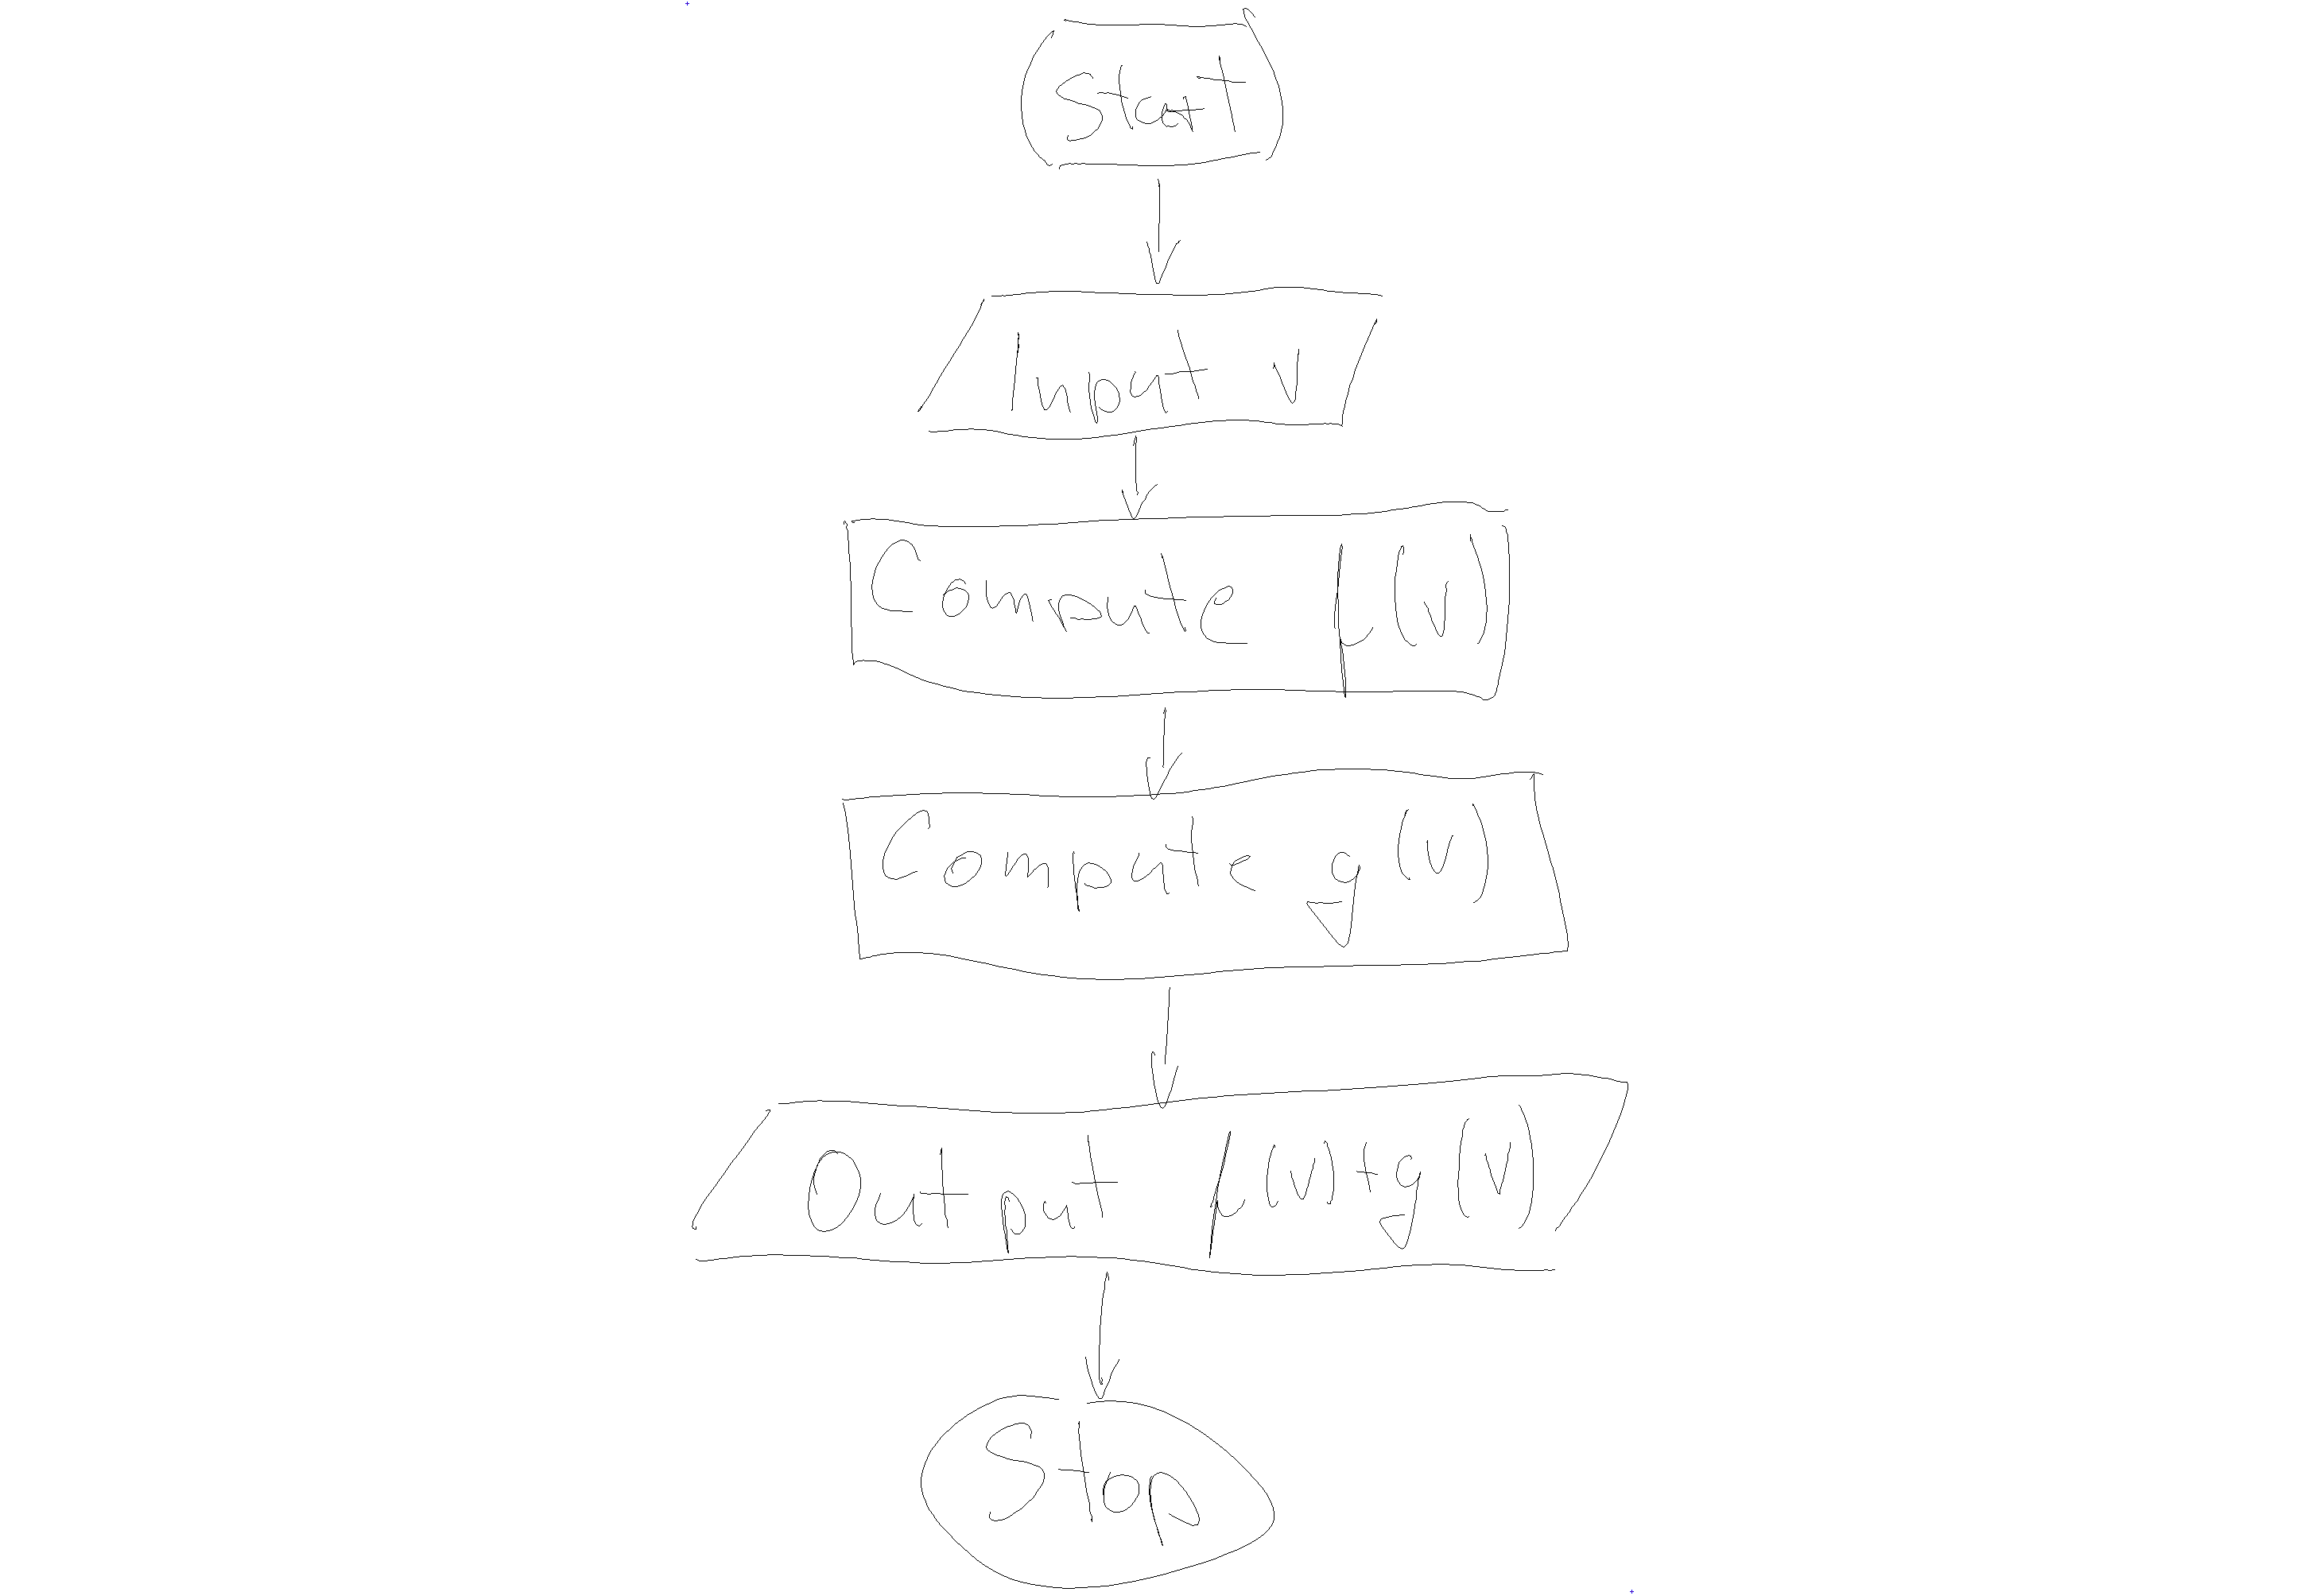 Start
Input v
Compute μ(v)
Compute g(v)
Output μ(v)+g(v)
Stop